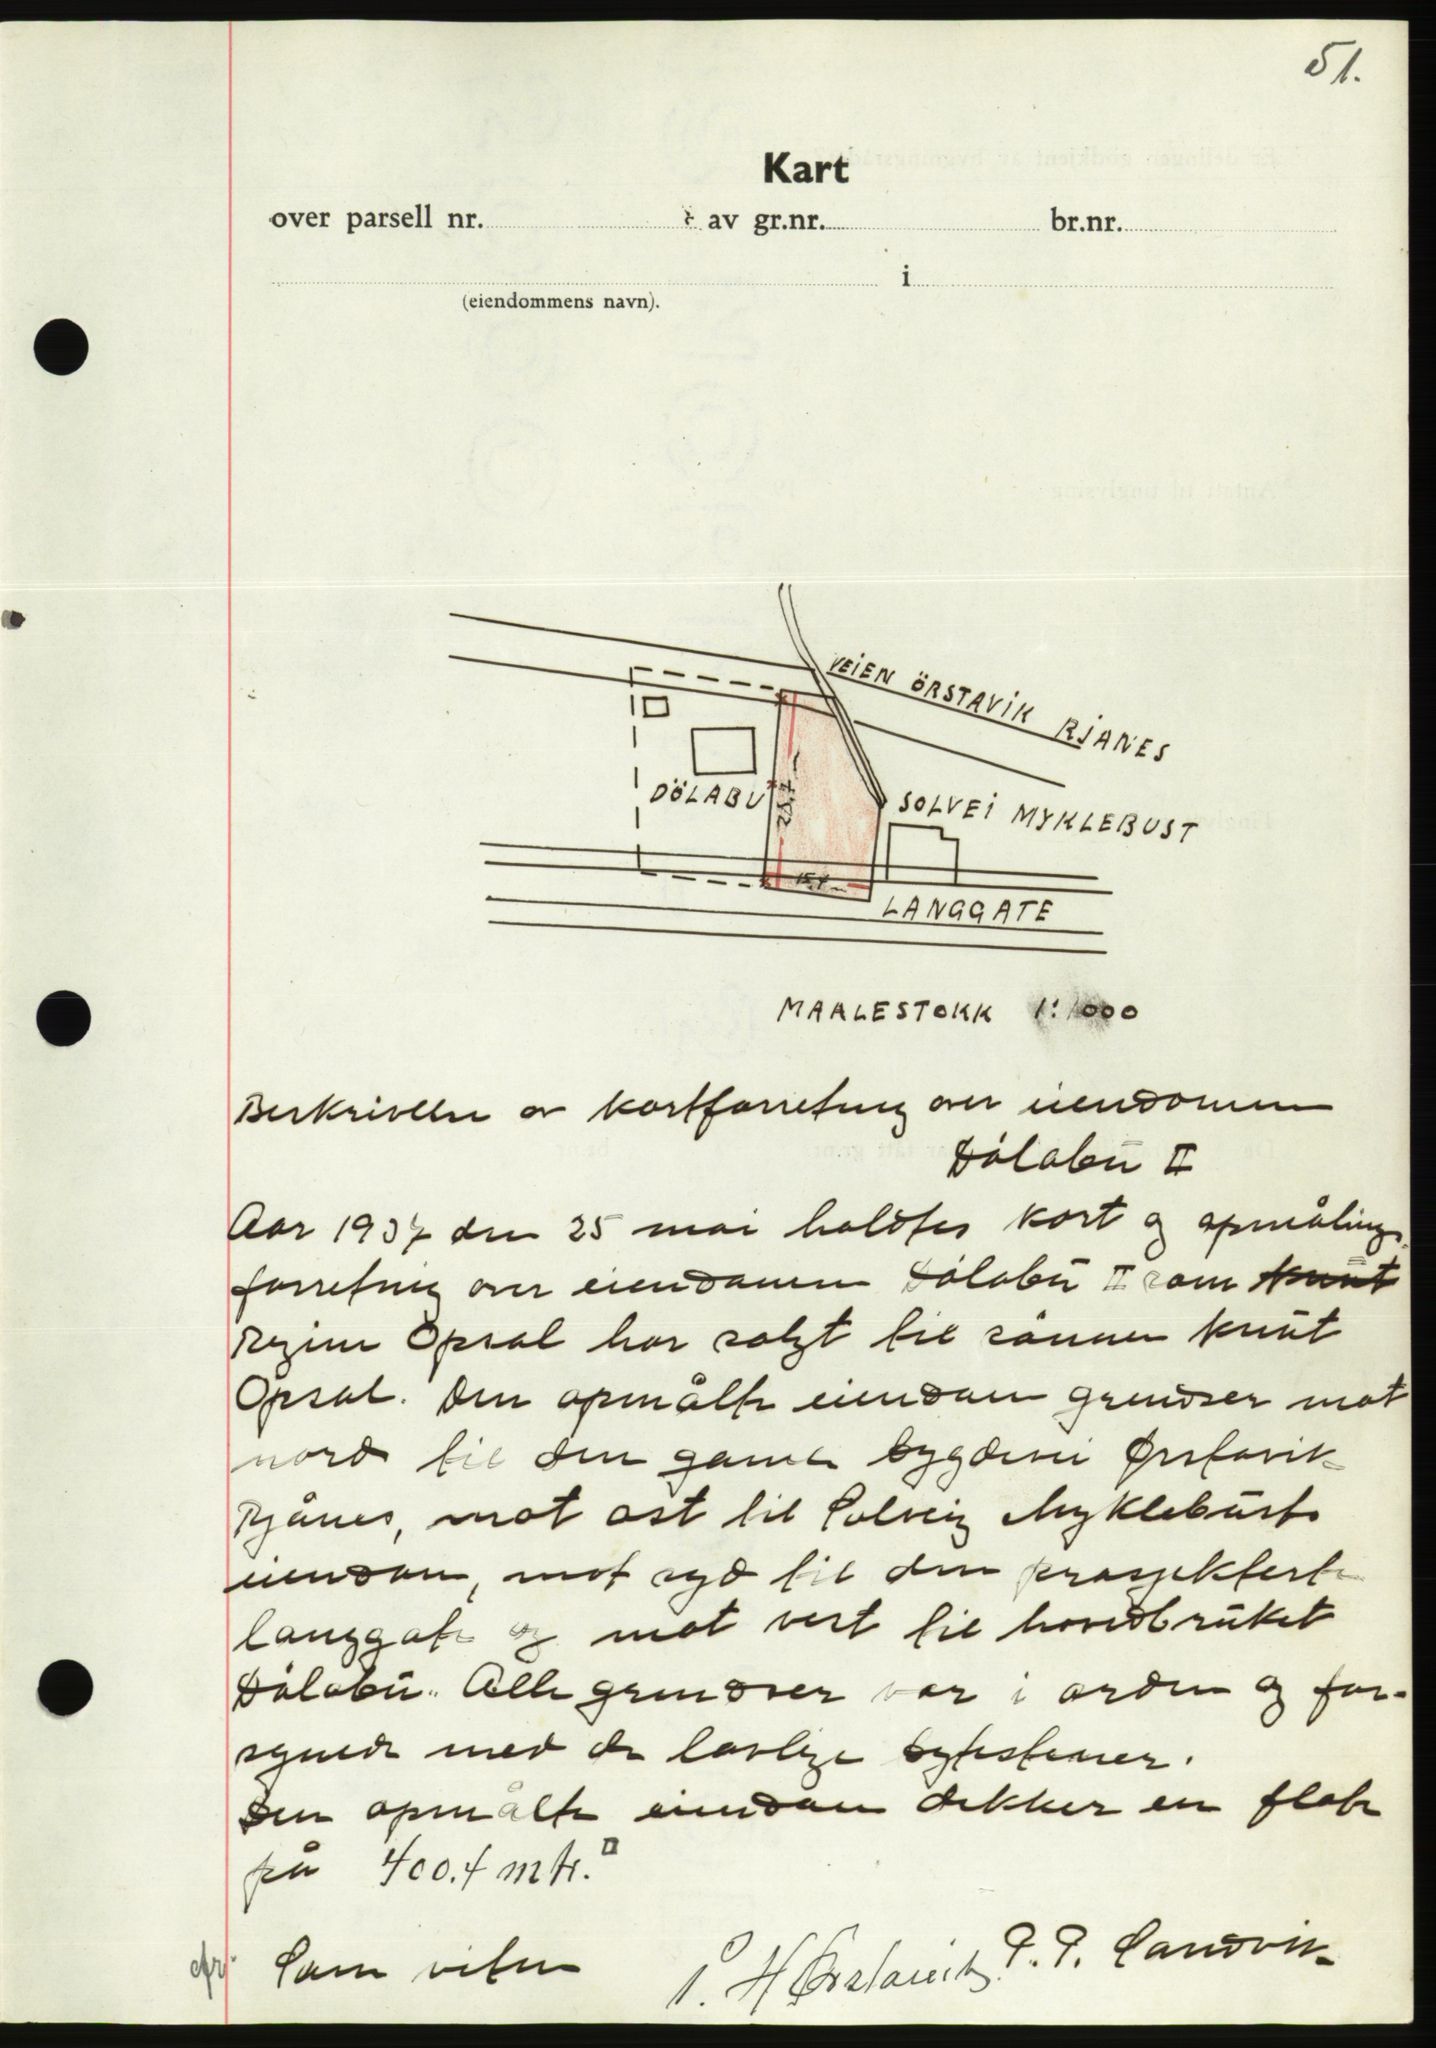 51.
Kart
over parsell nr. av gr.nr. br.nr.
i
(eiendommens navn).
VEIEN ÖRSTAVIK RJANES
DÖLABU
SOLVEI MYKLEBUST
15.4
LANGGATE
MAALESTOKK 1:1000
Beskrivelse av kartforretning over eiendommen
Dölabu II
Aar 1937 den 25 mai holdtes kart og opmålings
forretning over eiendommen Dölabu II som Knut
Regine Opsal har solgt til sönnen Knut
Opsal. Den opmålte eiendom grendser mot
nord til den gamle bygdevei Ørstavik-
Rjånes, mot ost til Solveig Myklebusts
eiendom, mot syd til den prosjekterte
langgate og mot vest til hovedbruket
Dölabu. Alle grendser var i orden og for-
synede med de lovlige bytesteiner.
Den opmålte eiendom dekker en flate
på 400.4 mtr.□
Som vitne P. P. Sandvik
P. H Ørstavik